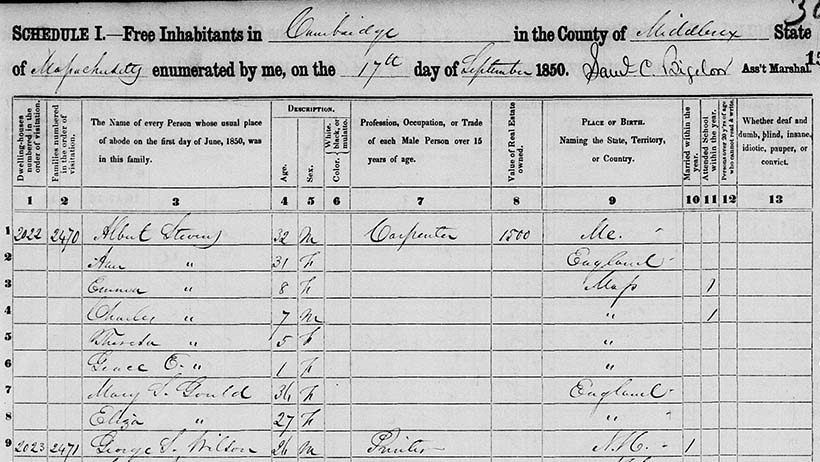 SCHEDULE I.—Free Inhabitants in Cambridge in the County of Middlesex State
of Massachusetts enumerated by me, on the 17th day of September 1850. Saml C. Bigelow Ass't Marshal.
Dwelling-houses numbered in the order of visitation.
Families numbered in the order of visitation.
The Name of every Person whose usual place of abode on the first day of June, 1850, was in this family.
DESCRIPTION.
Age.
Sex.
Color, White, black, or mulatto.
Profession, Occupation, or Trade of each Male Person over 15 years of age.
Value of Real Estate owned.
PLACE OF BIRTH. Naming the State, Territory, or Country.
Married within the year.
Attended School within the year.
Persons over 20 y'rs of age who cannot read & write.
Whether deaf and dumb, blind, insane, idiotic, pauper, or convict.
1 2 3 4 5 6 7 8 9 10 11 12 13
1 2022 2470 Albert Stevens 32 M Carpenter 1500 Me.
2 Ann " 31 F England
3 Emma " 8 F Mass 1
4 Charles " 7 M " 1
5 Theresa " 5 F "
6 Grace E. " 1 F "
7 Mary S. Gould 36 F England
8 Eliza " 27 F "
9 2023 2471 George S. Wilson 26 M Printer N.H. 1